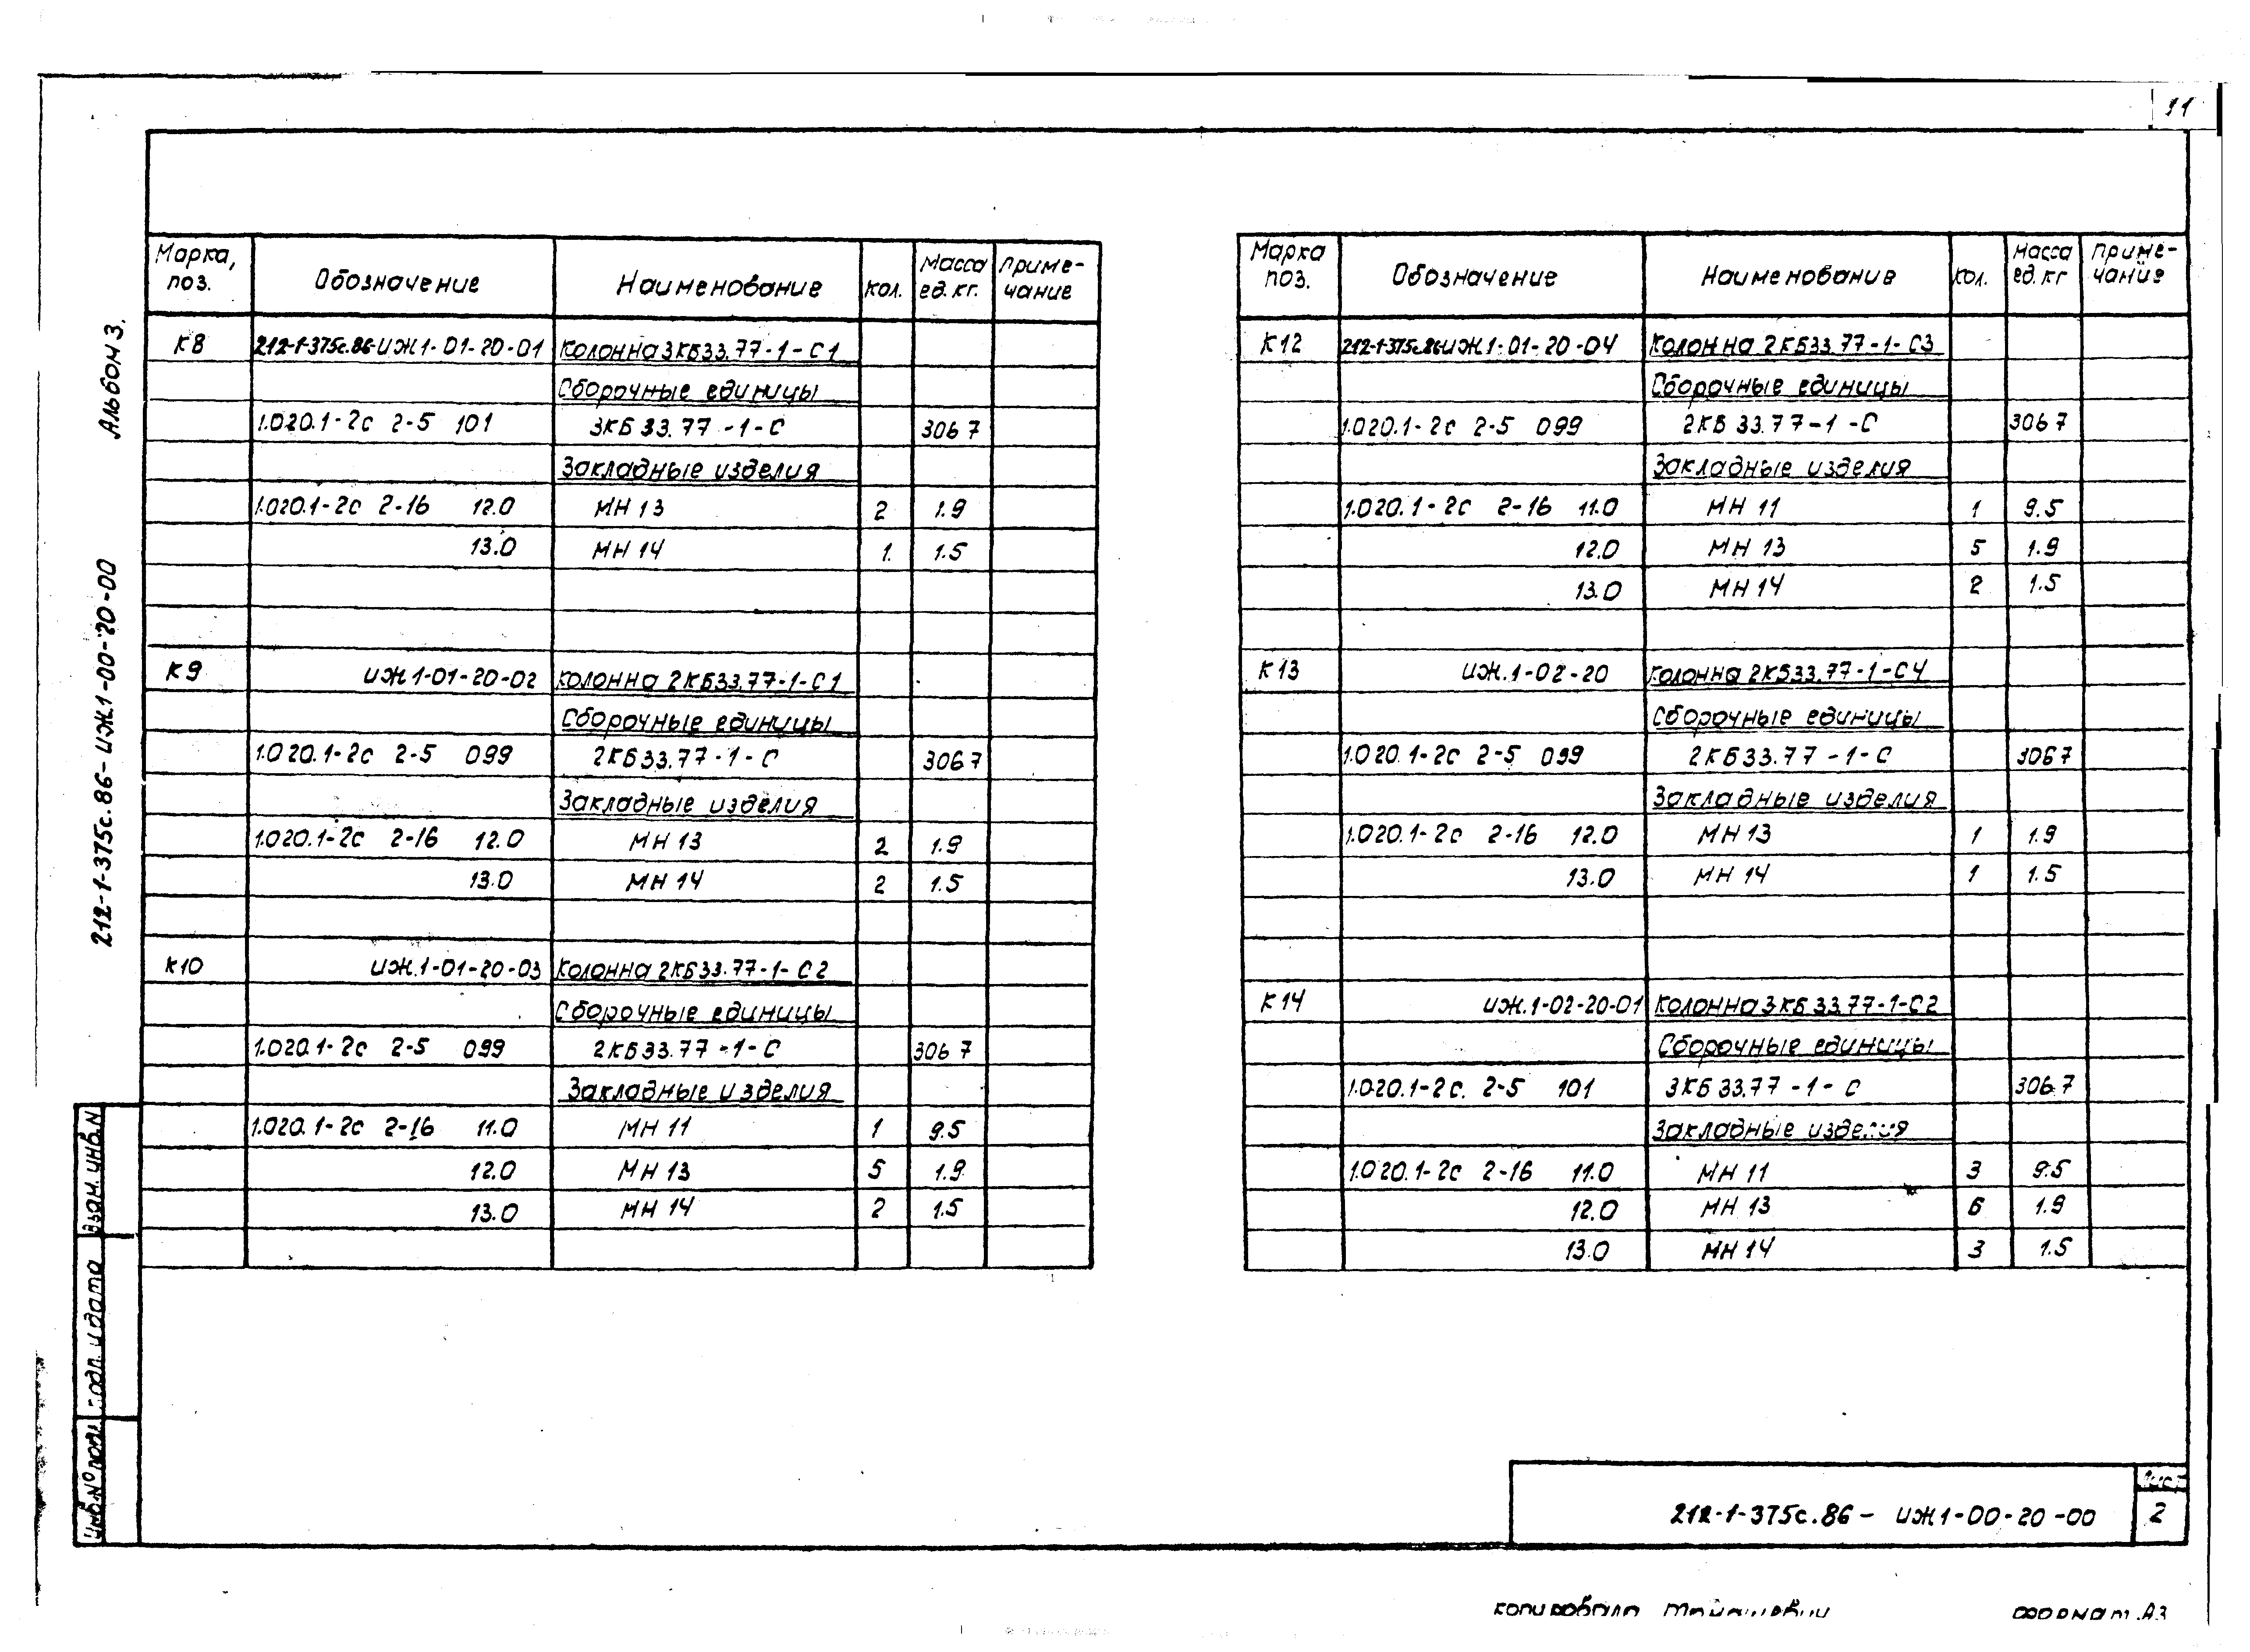 11
Альбом 3.
212-1-375с.86-ИЖ1-00-20-00
Марка, поз. Обозначение Наименование кол. Масса ед.кг. Приме-чание
К8 212-1-375с.86-ИЖ1-01-20-01 Колонна 3КБ33.77-1-С1
Сборочные единицы
1.020.1-2с 2-5 101 3КБ33.77-1-С 3067
Закладные изделия
1.020.1-2с 2-16 12.0 МН 13 2 1.9
13.0 МН 14 1. 1.5
К9 ИЖ1-01-20-02 Колонна 2КБ33.77-1-С1
Сборочные единицы
1.020.1-2с 2-5 099 2КБ33.77-1-С 3067
Закладные изделия
1.020.1-2с 2-16 12.0 МН 13 2 1.9
13.0 МН 14 2 1.5
К10 ИЖ.1-01-20-03 Колонна 2КБ33.77-1-С2
Сборочные единицы
1.020.1-2с 2-5 099 2КБ33.77-1-С 3067
Закладные изделия
1.020.1-2с 2-16 11.0 МН 11 1 9.5
12.0 МН 13 5 1.9
13.0 МН 14 2 1.5
Марка поз. Обозначение Наименование кол. Масса ед.кг Приме-чание
К12 212-1-375с.86-ИЖ1-01-20-04 Колонна 2КБ33.77-1-С3
Сборочные единицы
1.020.1-2с 2-5 099 2КБ33.77-1-С 3067
Закладные изделия
1.020.1-2с 2-16 11.0 МН 11 1 9.5
12.0 МН 13 5 1.9
13.0 МН 14 2 1.5
К13 ИЖ.1-02-20 Колонна 2КБ33.77-1-С4
Сборочные единицы
1.020.1-2с 2-5 099 2КБ33.77-1-С 3067
Закладные изделия
1.020.1-2с 2-16 12.0 МН 13 1 1.9
13.0 МН 14 1 1.5
К14 ИЖ.1-02-20-01 Колонна 3КБ33.77-1-С2
Сборочные единицы
1.020.1-2с. 2-5 101 3КБ33.77-1-С 3067
Закладные изделия
1.020.1-2с 2-16 11.0 МН 11 3 9.5
12.0 МН 13 6 1.9
13.0 МН 14 3 1.5
Взам.инв.N
подп. и дата
Инв.№ подл.
212-1-375с.86- ИЖ1-00-20-00
Лист
2
Копировала
Формат А3